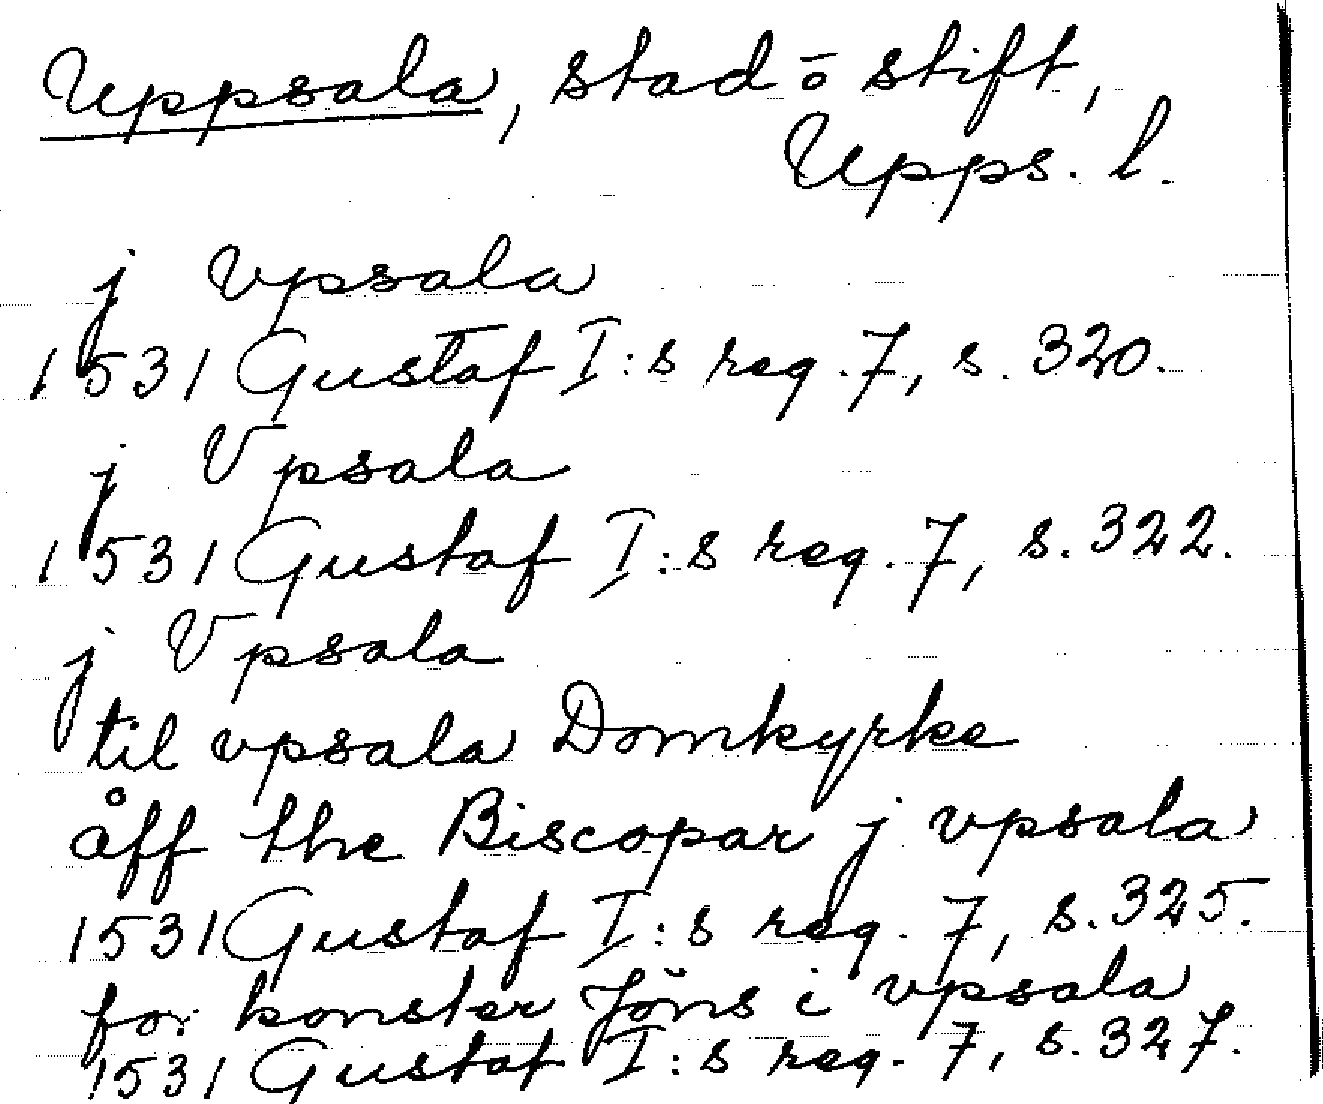 Uppsala, stad o stift,
Upps. l.
j vpsala
1531 Gustaf I:s reg. 7, s. 320.
j Vpsala
1531 Gustaf I:s reg. 7, s. 322.
j Vpsala
til vpsala Domkyrke
åff the Biscopar j vpsala
1531 Gustaf I:s reg. 7, s. 325.
for konster Jöns i vpsala
1531 Gustaf I:s reg. 7, s. 327.